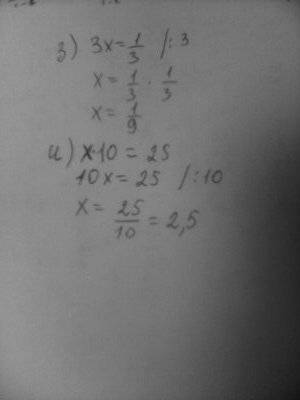 з) 3x = 1/3 /: 3
x = 1/3 · 1/3
x = 1/9
и) x·10 = 25
10x = 25 /: 10
x = 25/10 = 2,5